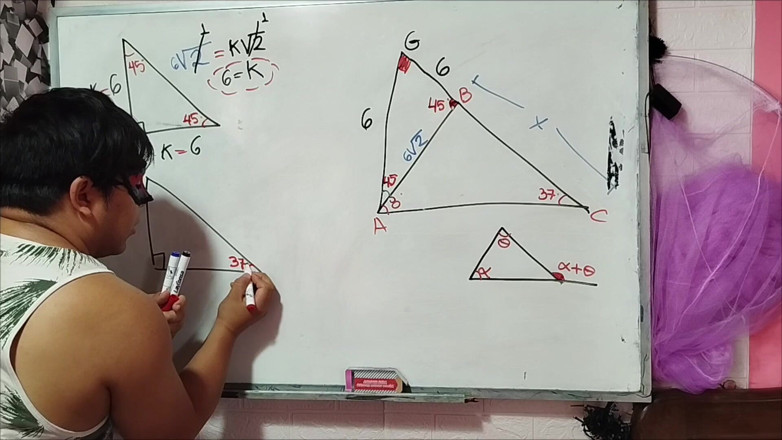 45°
45°
K=6
6√2 = K√2
1
1
6=K
K=6
37
G
6
6
45
B
6√2
x
45
8°
37
A
C
θ
α
α+θ